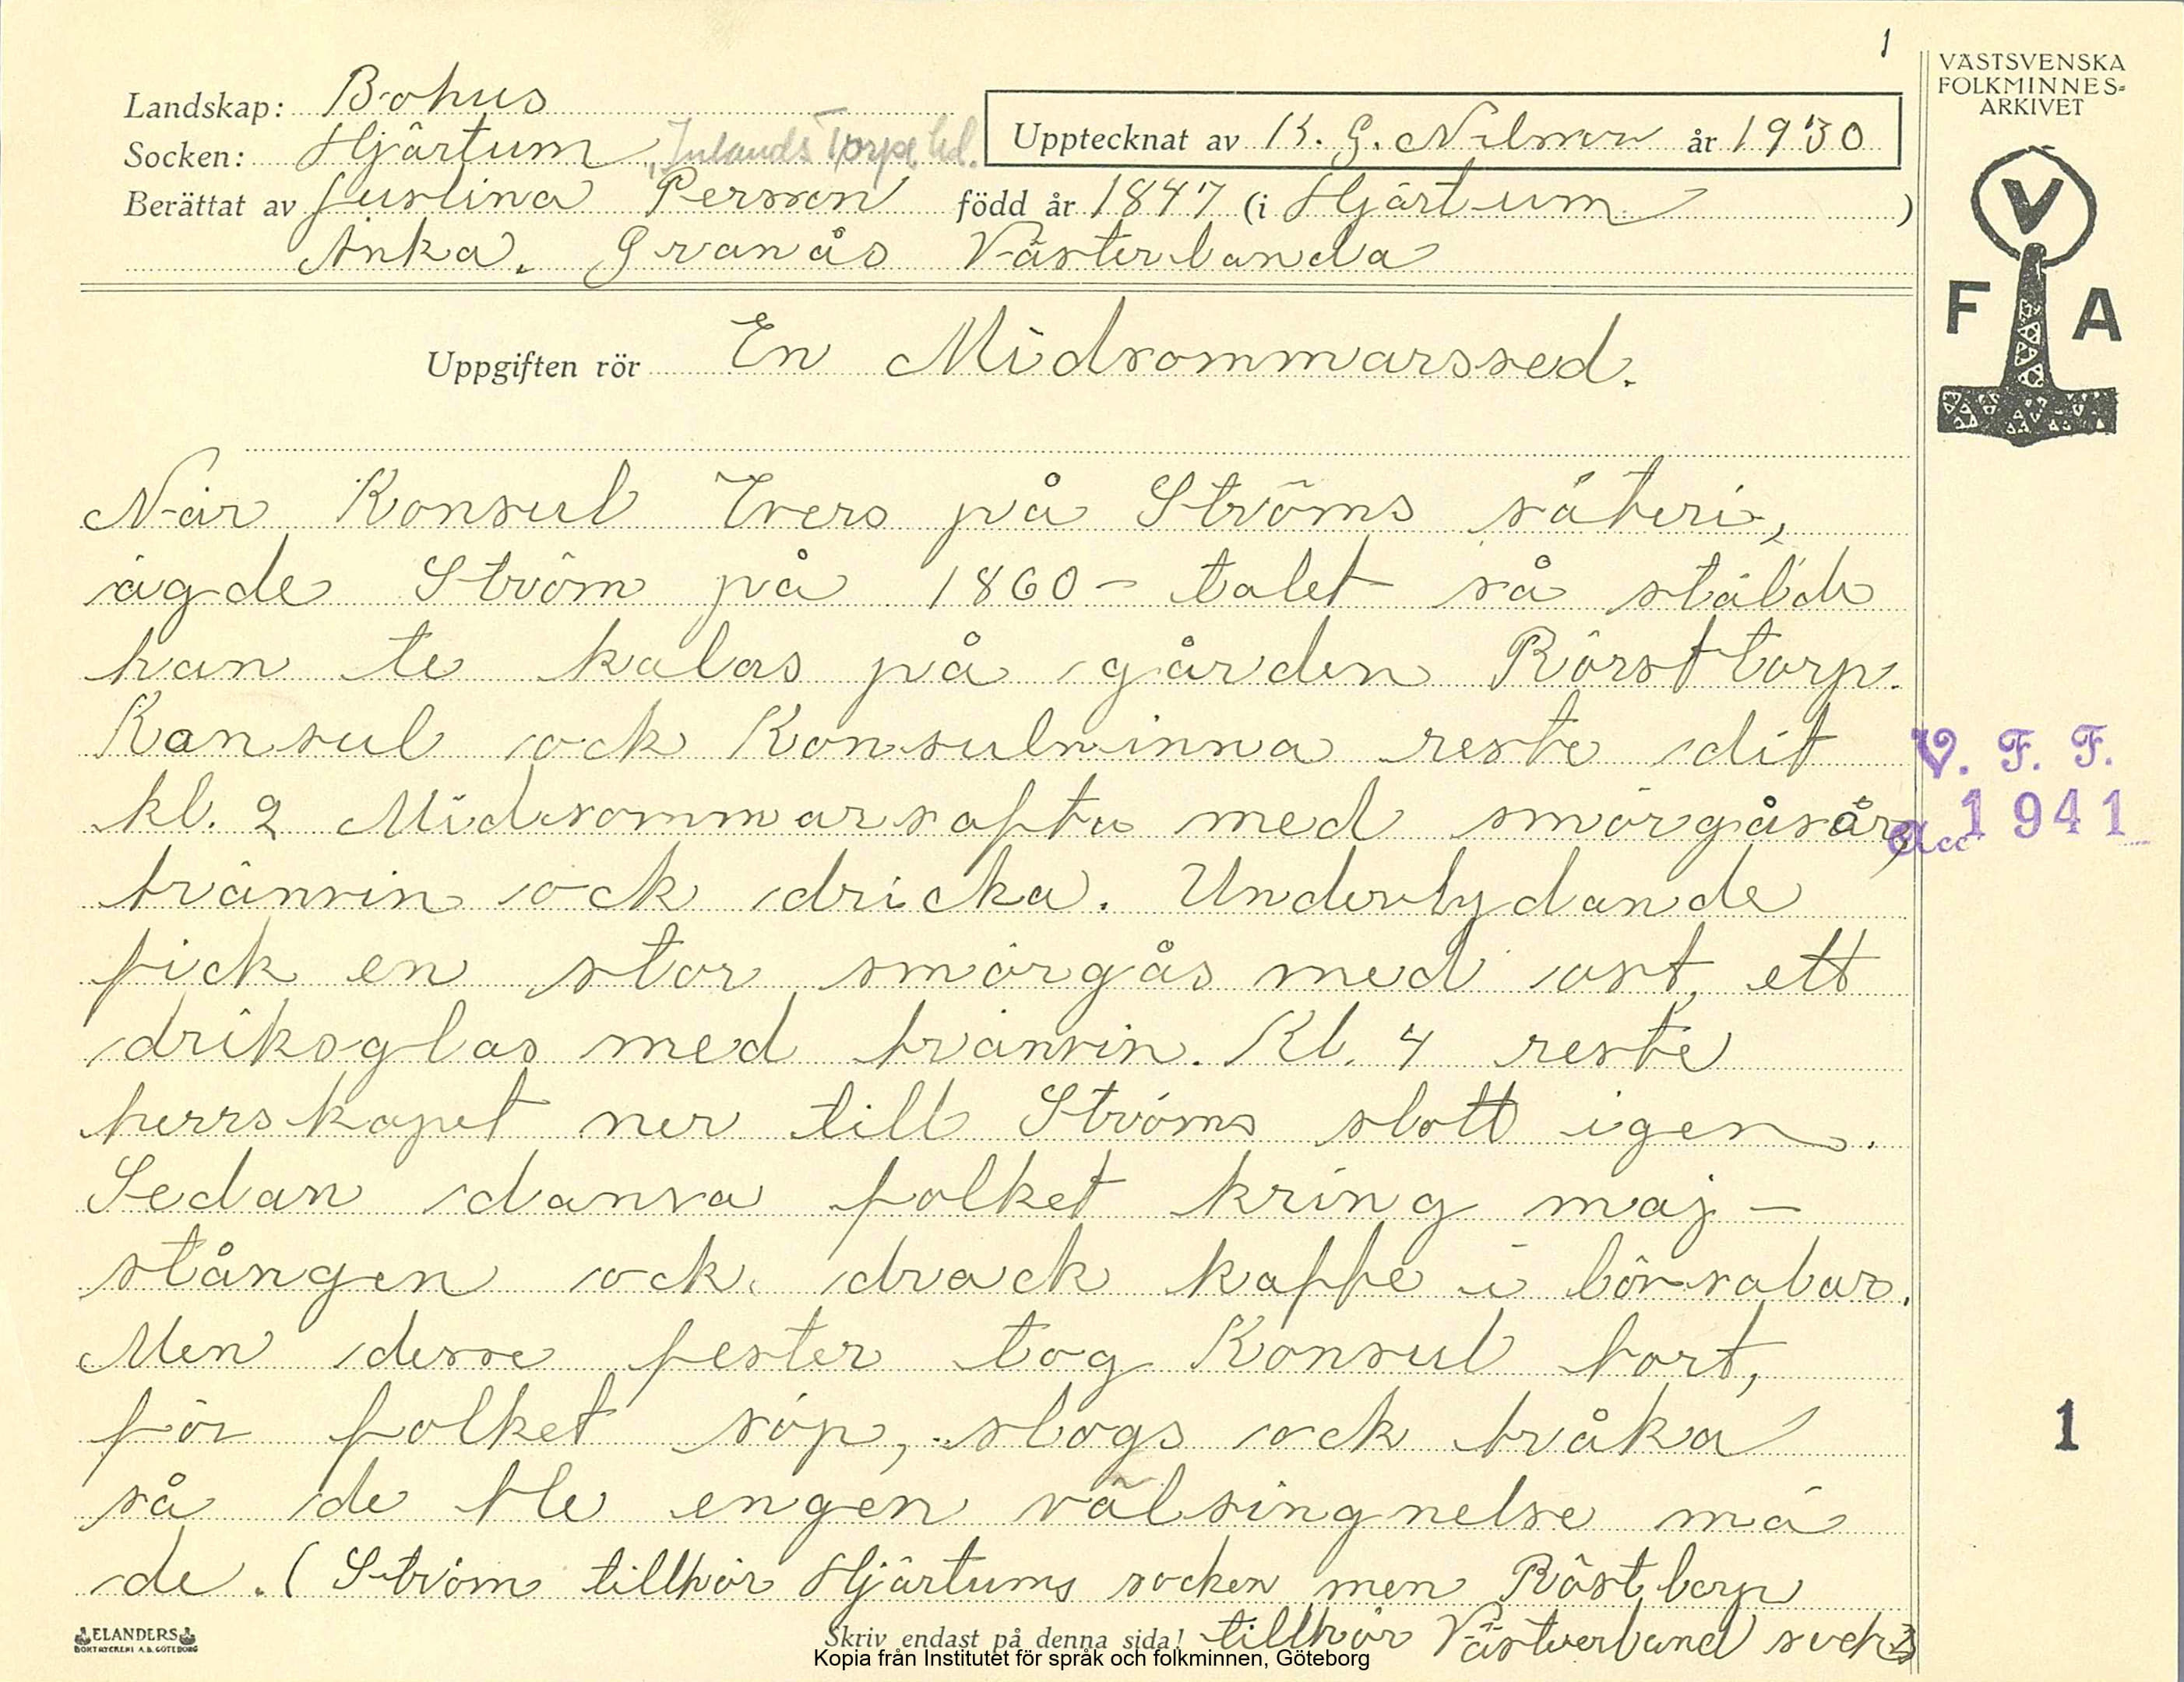 1
VÄSTSVENSKA
FOLKMINNES-
ARKIVET
Landskap: Bohus
Socken: Hjärtum Inlands Torpe hd.
Upptecknat av K. G. Nilsson år 1930
Berättat av Justina Persson född år 1847 (i Hjärtum )
Änka. Granås Västerlanda
V
F A
Uppgiften rör En Midsommarssed.
När Konsul Ivers på Ströms säteri,
ägde Ström på 1860-talet så stälde
han te kalas på gården Rörsttorp.
Konsul ock Konsulninna reste dit
kl. 2 Midsommarsafto med smörgåsår,
bränvin ock dricka. Underlydande
fick en stor smörgås med ost, ett
driksglas med bränvin. Kl. 4 reste
herrskapet ner till Ströms slott igen.
Sedan dansa folket kring maj-
stången ock drack kaffe i lövsalar.
Men desse fester tog Konsul bort,
för folket söp, slogs ock bråka
så de ble engen välsingnelse mä
de. (Ström tillhör Hjärtums socken men Röstborp
tillhör Västerland sock
V. F. F.
Acc 1941
1
ELANDERS
BOKTRYCKERI A.B. GÖTEBORG
Skriv endast på denna sida!
Kopia från Institutet för språk och folkminnen, Göteborg